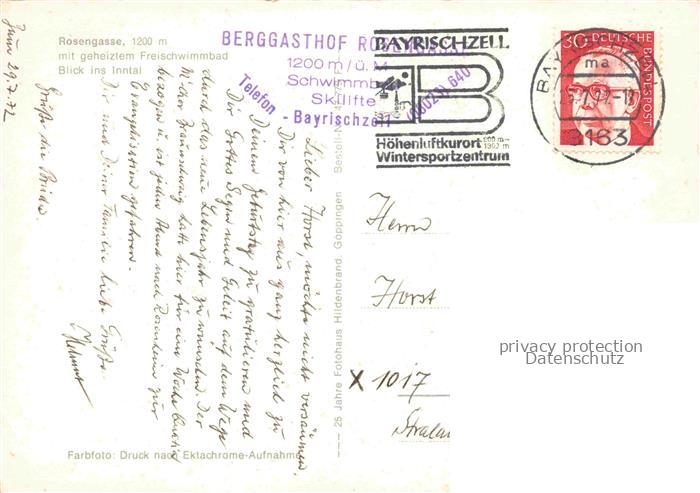 Rosengasse, 1200 m
mit geheiztem Freischwimmbad
Blick ins Inntal
BERGGASTHOF ROSENGASSE
1200 m / ü. M
Schwimmb
Skilifte
Telefon 640
- Bayrischzell -
BAYRISCHZELL
B
Höhenluftkurort
800 m –
Wintersportzentrum
30 DEUTSCHE
BUNDESPOST
ma
8163
Zum 29.7.72
Lieber Horst, möchte nicht versäumen,
Dir von hier aus ganz herzlich zu
Deinem Geburtstag zu gratulieren und
Dir Gottes Segen und Geleit auf dem Wege
durch das neue Lebensjahr zu wünschen. Der
hatte hier für eine Woche Quartier
bezogen u. ist jeden Abend nach Rosenheim zur
Evangelisation gefahren.
Dir und Deiner Familie liebe Grüße
Helmut
Grüße die Brüder.
Herrn
Horst
x 1017
Stralau
Bestell-Nr.
25 Jahre Fotohaus Hildenbrand, Göppingen
Farbfoto: Druck nach Ektachrome-Aufnahmen
privacy protection
Datenschutz